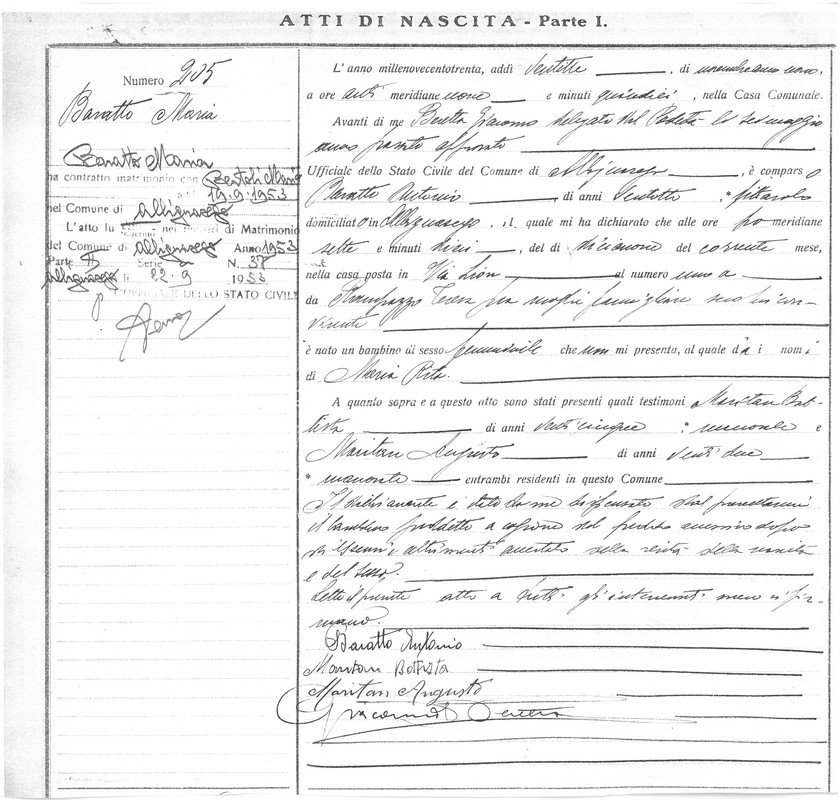 ATTI DI NASCITA - Parte I.
Numero 205
Baratto Maria
Baratto Maria
ha contratto matrimonio con Bertoli Mario
addì 19.9.1953
nel Comune di Albignasego
L'atto fu nei registri di Matrimonio
del Comune di Albignasego Anno 1953
Parte II Serie a N. 37
Albignasego li 22-9 1953
L'UFFICIALE DELLO STATO CIVILE
L'anno millenovecentotrenta, addì , di
a ore meridiane e minuti quindici , nella Casa Comunale.
Avanti di me Beretta Giacomo delegato dal Podestà lo sei maggio
anno
Ufficiale dello Stato Civile del Comune di , è comparso
Baratto Antonio di anni trentotto
domiciliato in , il quale mi ha dichiarato che alle ore po meridiane
sette e minuti dieci , del dì diecinove del corrente mese,
nella casa posta in Via Lion al numero uno a
da Teresa sua moglie seco lui con-
vivente
è nato un bambino di sesso femminile che non mi presenta, al quale dà i nomi
di Maria Rita.
A quanto sopra e a questo atto sono stati presenti quali testimoni Maritan Bat-
tista di anni venticinque e
Maritan Augusto di anni ventidue
manovale entrambi residenti in questo Comune
Il dichiarante è stato da me dispensato dal presentarmi
il bambino suddetto a cagione del
altrimenti accertato della verità della nascita
e del sesso.
Letto il presente atto a tutti gli intervenuti meco si fir-
mano.
Baratto Antonio
Maritan Battista
Maritan Augusto